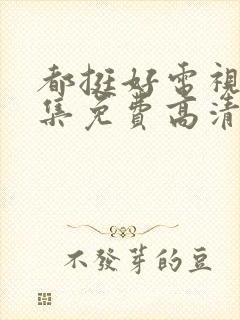 都挺好电视
集免费高清
不發芽的豆